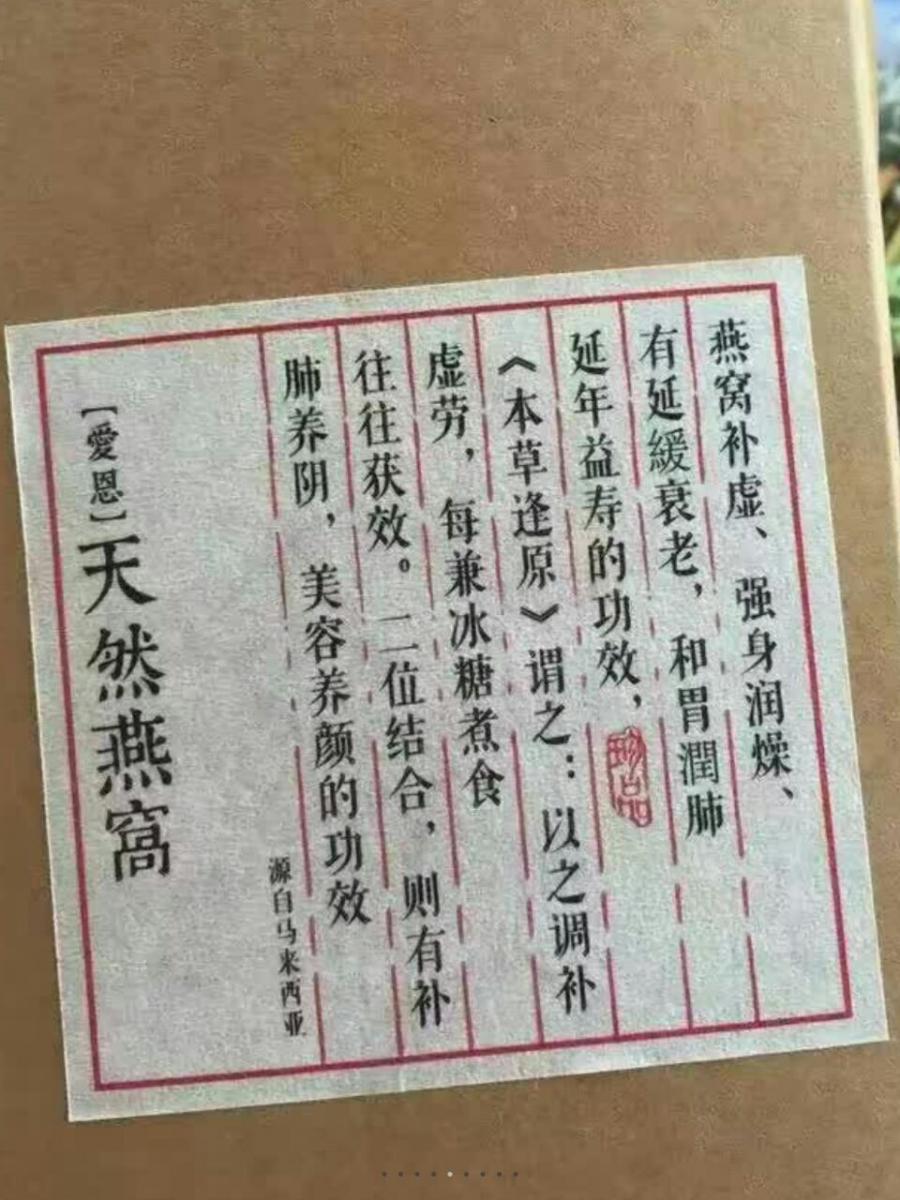 燕窝补虚、强身润燥、
有延緩衰老，和胃潤肺
延年益寿的功效，
珍品
《本草逢原》谓之：以之调补
虚劳，每兼冰糖煮食
往往获效。二位结合，则有补
肺养阴，美容养颜的功效
源自马来西亚
［愛恩］天然燕窩